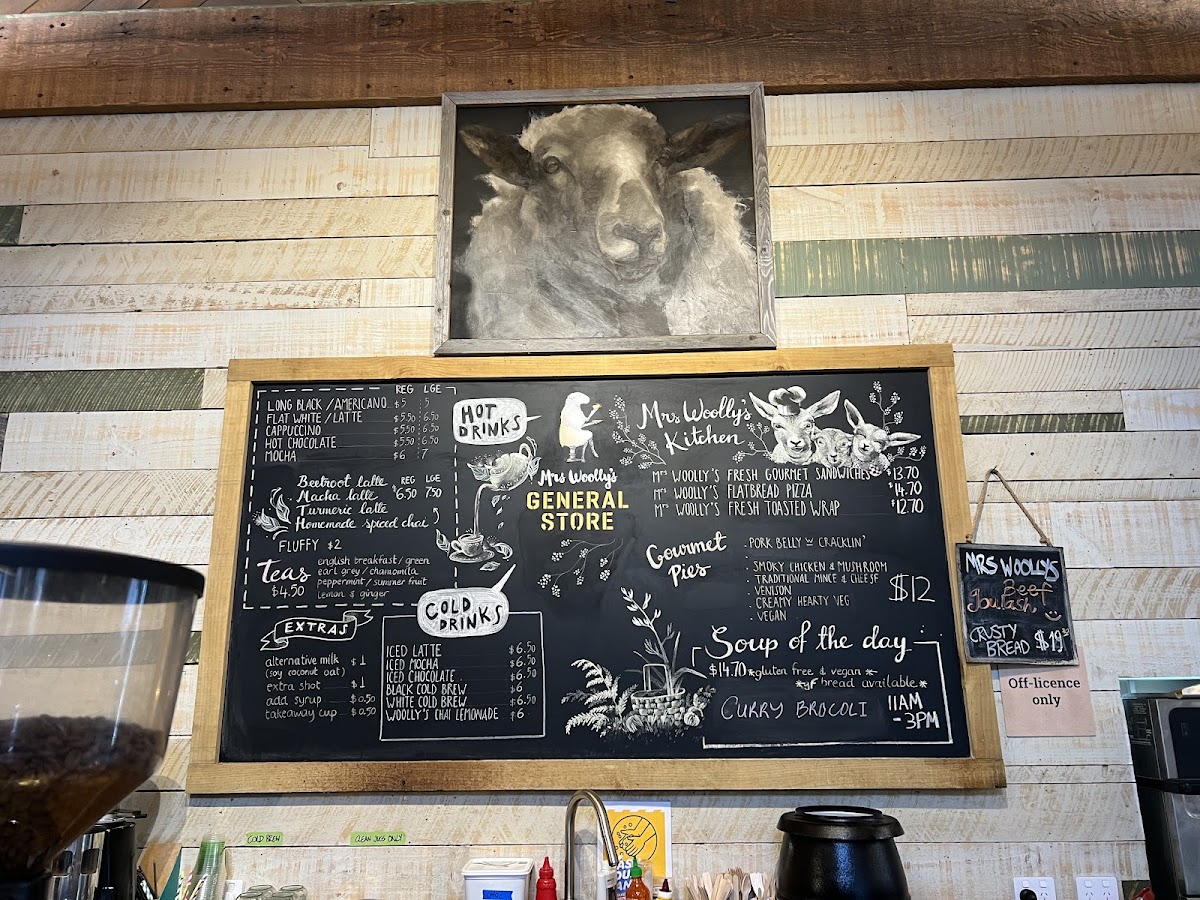 REG LGE
LONG BLACK / AMERICANO $5 5
FLAT WHITE / LATTE $5.50 6.50
CAPPUCCINO $5.50 6.50
HOT CHOCOLATE $5.50 6.50
MOCHA $6 7
HOT
DRINKS
Beetroot latte REG LGE
Macha latte $6.50 7.50
Turmeric latte
Homemade spiced chai
FLUFFY $2
Teas
$4.50
english breakfast / green
earl grey / chamomila
peppermint / summer fruit
lemon & ginger
EXTRAS
alternative milk $1
(soy coconut oat)
extra shot $1
add syrup $0.50
takeaway cup $0.50
COLD
DRINKS
ICED LATTE $6.50
ICED MOCHA $6.50
ICED CHOCOLATE $6.50
BLACK COLD BREW $6
WHITE COLD BREW $6.50
WOOLLY'S CHAI LEMONADE $6
Mrs Woolly's
GENERAL
STORE
Mrs Woolly's
Kitchen
Mrs WOOLLY'S FRESH GOURMET SANDWICHES $13.70
Mrs WOOLLY'S FLATBREAD PIZZA $14.70
Mrs WOOLLY'S FRESH TOASTED WRAP $12.70
Gourmet
Pies
. PORK BELLY W CRACKLIN'
. SMOKY CHICKEN & MUSHROOM
. TRADITIONAL MINCE & CHEESE
. VENISON
. CREAMY HEARTY VEG
. VEGAN
$12
Soup of the day
$14.70 *gluten free & vegan *
*gf bread available *
CURRY BROCOLI 11AM
- 3PM
MRS WOOLLYS
Beef
Goulash
CRUSTY
BREAD $19.50
Off-licence
only
COLD BREW
CLEAN JUGS ONLY